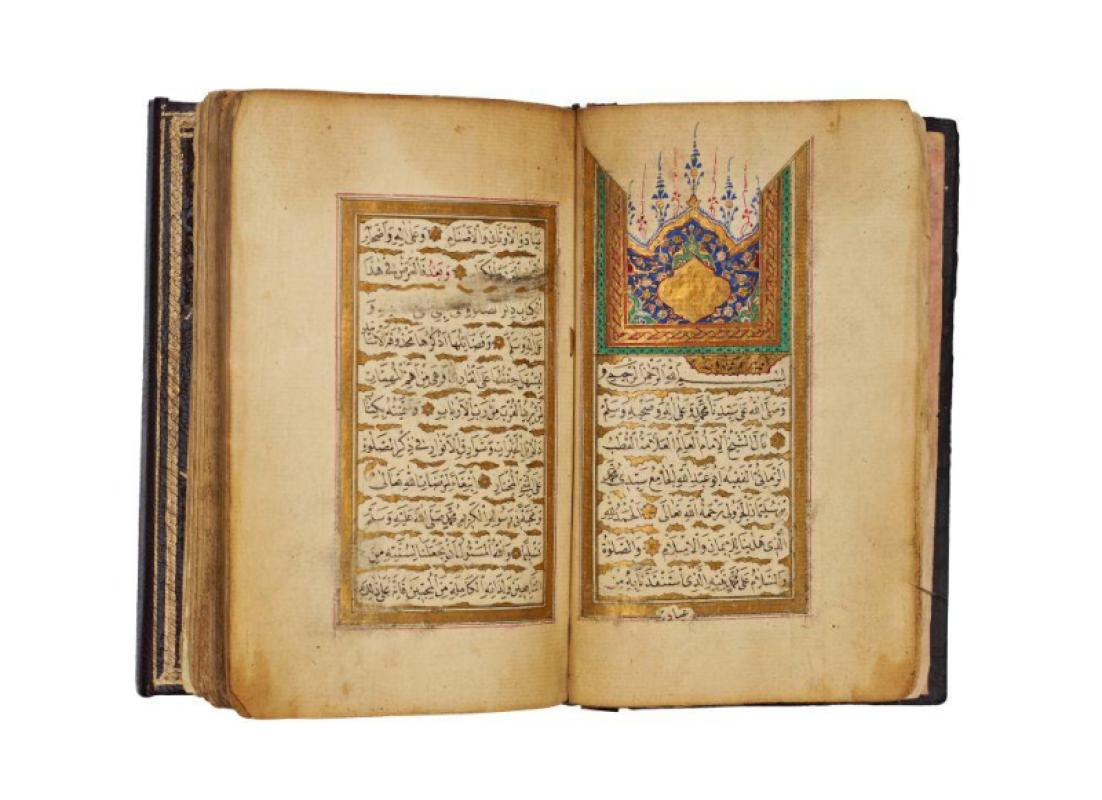 بسم الله الرحمن الرحيم
وصلى الله على سيدنا محمد وعلى اله وصحبه وسلم
قال الشيخ الامام العالم العلامة القطب
الزماني الفقيه ابو عبد الله الجامع سيدي محمد
بن سليمان الجزولي رحمة الله تعالى الحمد لله
الذي هدينا للايمان والاسلام والصلوة
والسلام على محمد نبيه الذي استنقذنا به من
عبادة
عبادة الاوثان والاصنام وعلى اله واصحابه
وبعد هذا فالغرض في هذا
الكتاب ذكر الصلوة على النبي و
على اله وسلم وفضائلها اذكرها محذوفة الاسانيد
ليسهل حفظها على القارئ وهي من اهم المهمات
لمن يريد القرب من رب الارباب وسميته بكتاب
دلائل الخيرات وشوارق الانوار في ذكر الصلوة
على النبي المختار ابتغاء لمرضات الله تعالى
ومحبة في رسوله الكريم محمد صلى الله عليه وسلم
تسليما والله المسئول ان يجعلنا لسنته من
التابعين ولذاته الكاملة من المحبين فانه على ذلك